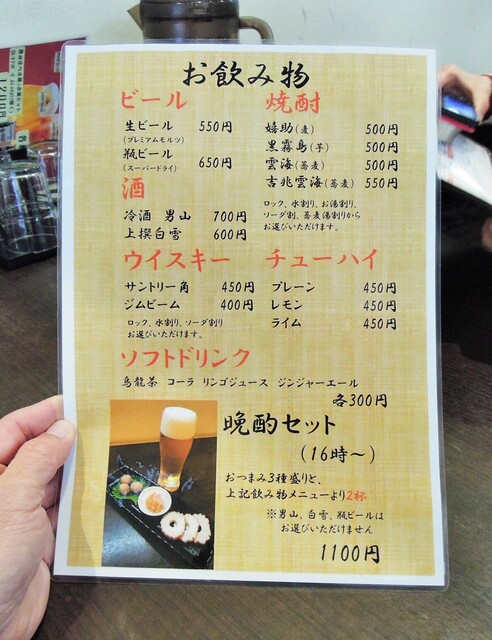 お飲み物
ビール
生ビール 550円
(プレミアムモルツ)
瓶ビール 650円
(スーパードライ)
酒
冷酒 男山 700円
上撰白雪 600円
焼酎
嬉助(麦) 500円
黒霧島(芋) 500円
雲海(蕎麦) 500円
吉兆雲海(蕎麦) 550円
ロック、水割り、お湯割り、
ソーダ割、蕎麦湯割りから
お選びいただけます。
ウイスキー
サントリー角 450円
ジムビーム 400円
ロック、水割り、ソーダ割り
お選びいただけます。
チューハイ
プレーン 450円
レモン 450円
ライム 450円
ソフトドリンク
烏龍茶 コーラ リンゴジュース ジンジャーエール
各300円
晩酌セット
(16時~)
おつまみ3種盛りと、
上記飲み物メニューより2杯
※男山、白雪、瓶ビールは
お選びいただけません
1100円